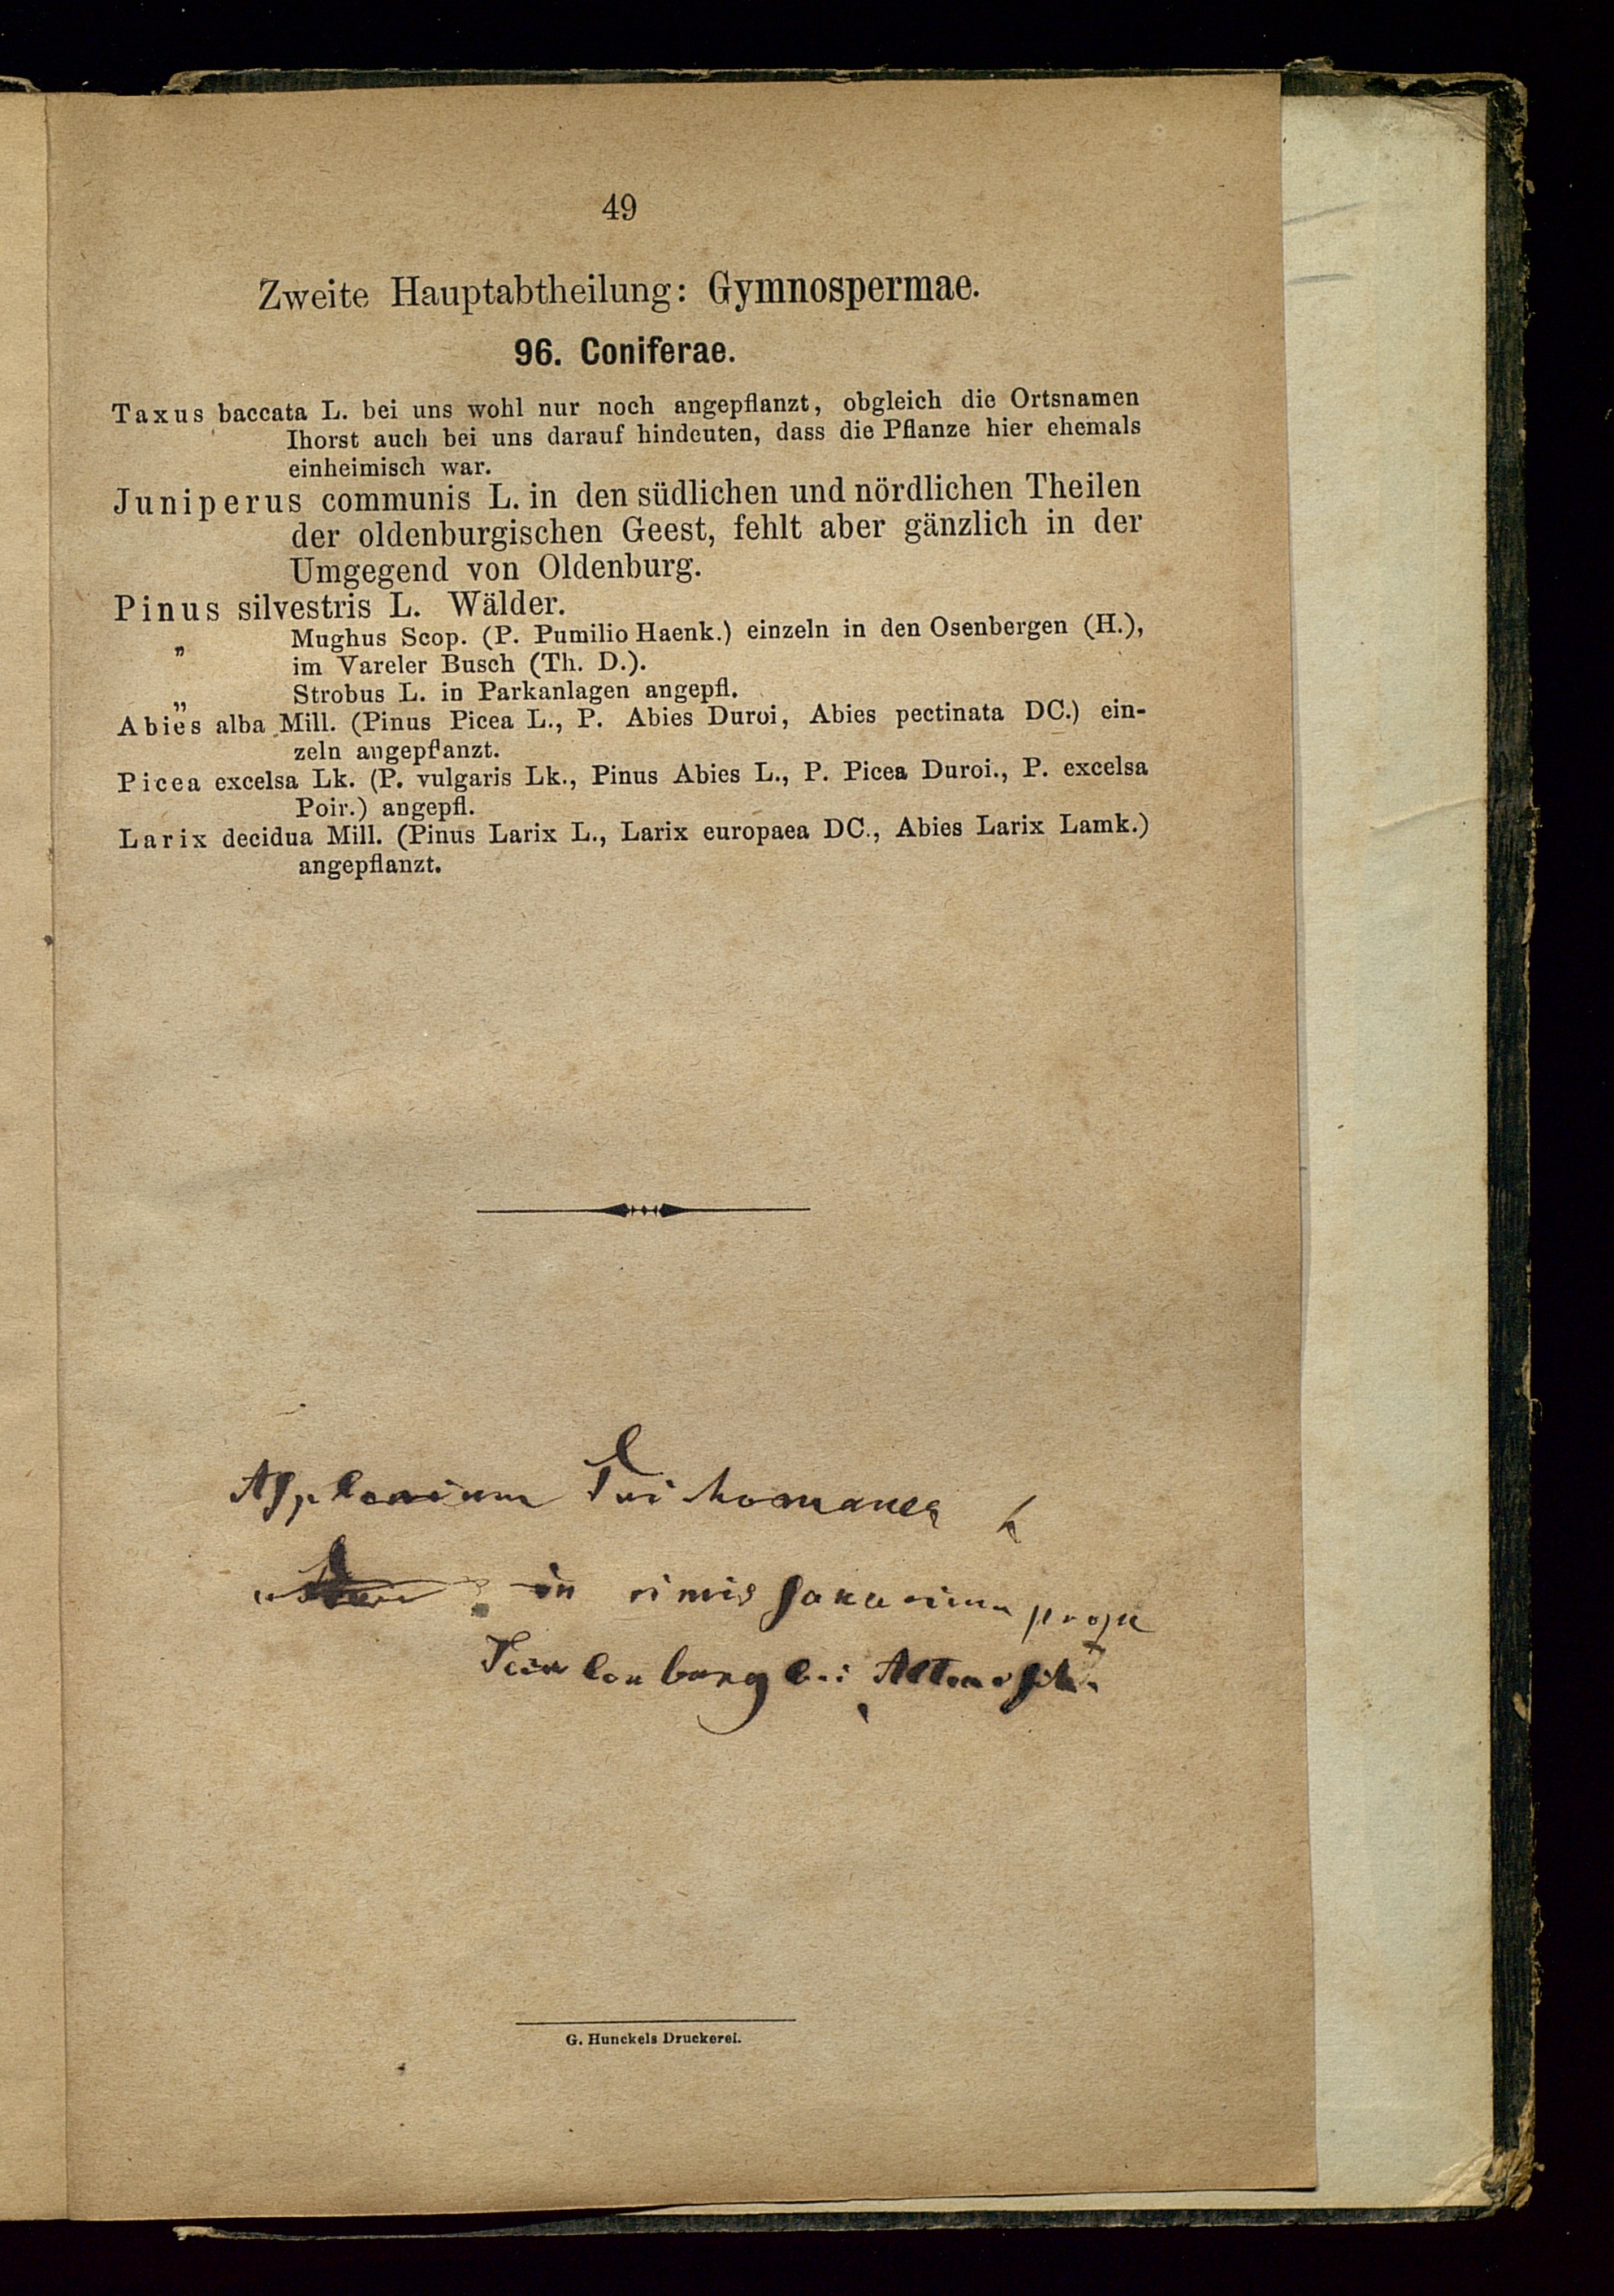 49
Zweite Hauptabtheilung: Gymnospermae.
96. Coniferae.
Taxus baccata L. bei uns wohl nur noch angepflanzt, obgleich die Ortsnamen
Ihorst auch bei uns darauf hindeuten, dass die Pflanze hier ehemals
einheimisch war.
Juniperus communis L. in den südlichen und nördlichen Theilen
der oldenburgischen Geest, fehlt aber gänzlich in der
Umgegend von Oldenburg.
Pinus silvestris L. Wälder.
„ Mughus Scop. (P. Pumilio Haenk.) einzeln in den Osenbergen (H.),
im Vareler Busch (Th. D.).
„ Strobus L. in Parkanlagen angepfl.
Abies alba Mill. (Pinus Picea L., P. Abies Duroi, Abies pectinata DC.) ein-
zeln angepflanzt.
Picea excelsa Lk. (P. vulgaris Lk., Pinus Abies L., P. Picea Duroi., P. excelsa
Poir.) angepfl.
Larix decidua Mill. (Pinus Larix L., Larix europaea DC., Abies Larix Lamk.)
angepflanzt.
Asplenium Trichomanes L
in rimis prope
bei
G. Hunckels Druckerei.